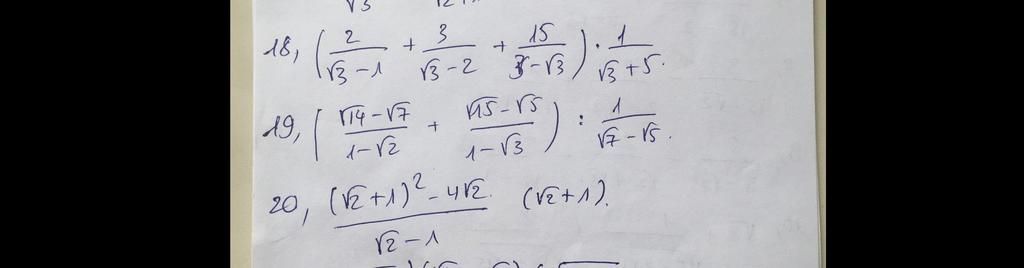 18, (2/(√3 - 1) + 3/(√3 - 2) + 15/(3 - √3)) · 1/(√3 + 5).
19, ((√14 - √7)/(1 - √2) + (√15 - √5)/(1 - √3)) : 1/(√7 - √5).
20, ((√2 + 1)² - 4√2)/(√2 - 1) (√2 + 1).